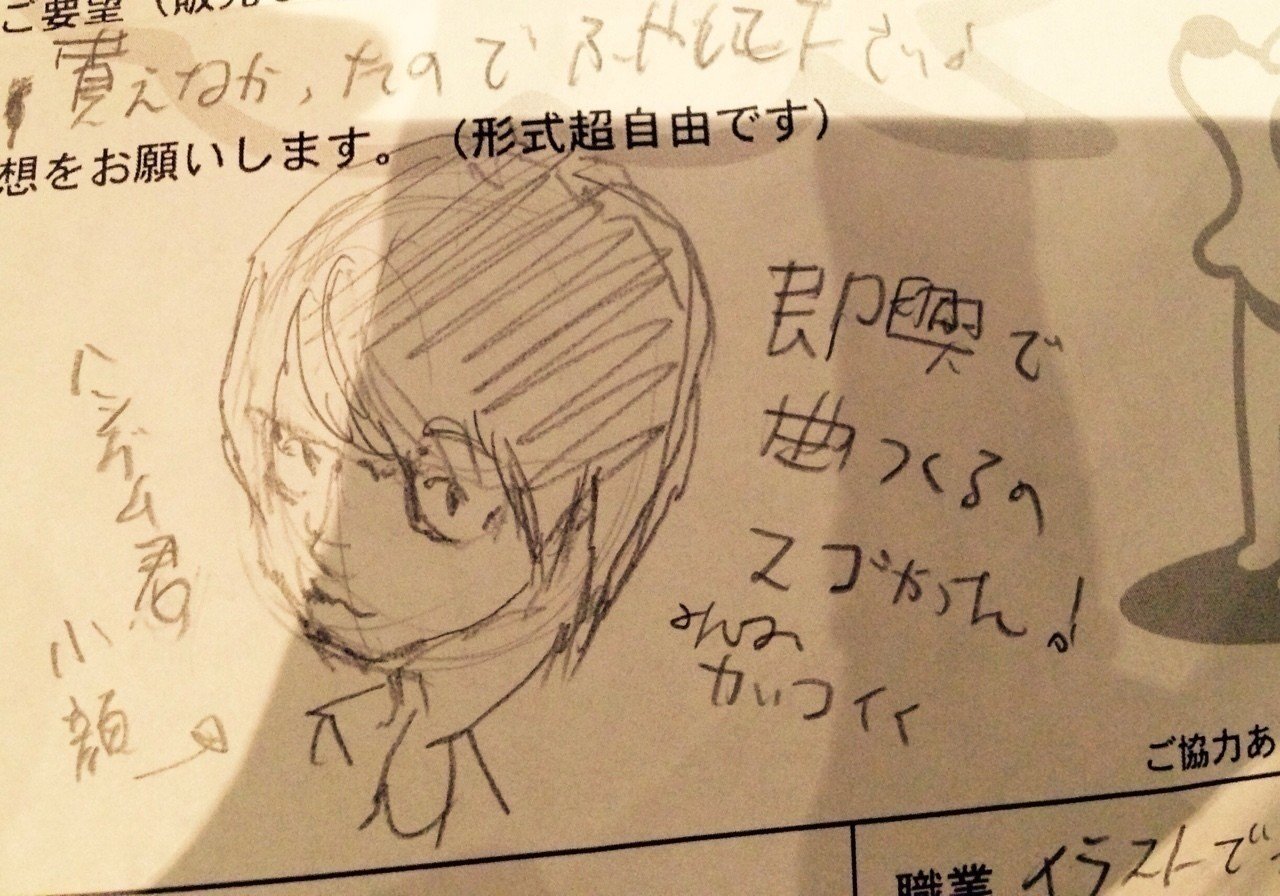 ご要望（販売
買えなかったのでふやして下さいよ
想をお願いします。（形式超自由です）
ハンサム君
小顔
即興で
曲つくるの
スゴかった!
みんな
かっコイイ
ご協力あ
職業 イラストで